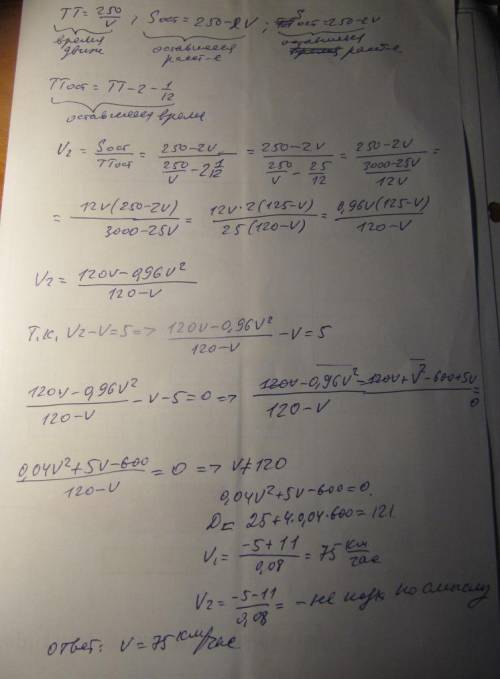 TT = 250/V ; Sост = 250-2V ; Sост = 250-2V
время движ оставшееся расст-е оставшееся расст-е
TTост = TT - 2 - 1/12
оставшееся время
V2 = Sост/TTост = (250-2V)/(250/V - 2 1/12) = (250-2V)/(250/V - 25/12) = (250-2V)/((3000-25V)/12V) =
= 12V(250-2V)/(3000-25V) = 12V·2(125-V)/25(120-V) = 0,96V(125-V)/(120-V)
V2 = (120V-0,96V²)/(120-V)
Т.к. V2-V=5 => (120V-0,96V²)/(120-V) - V = 5
(120V-0,96V²)/(120-V) - V-5=0 => (120V-0,96V²-120V+V²-600+5V)/(120-V) = 0
(0,04V²+5V-600)/(120-V) = 0 => V≠120
0,04V²+5V-600=0.
D = 25+4·0,04·600=121
V1 = (-5+11)/0,08 = 75 км/час
V2 = (-5-11)/0,08 = - не подх по смыслу
Ответ: V=75 км/час